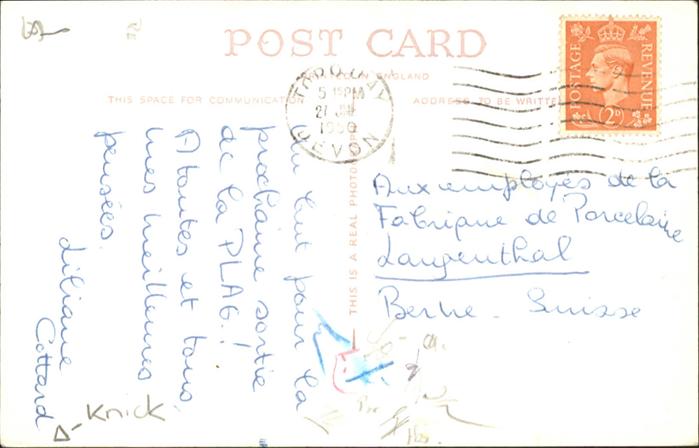 POST CARD
PRINTED IN ENGLAND
THIS SPACE FOR COMMUNICATION
ADDRESS TO BE WRITTEN
THIS IS A REAL PHOTO
TORQUAY
5 15 PM
1950
DEVON
POSTAGE
REVENUE
2D
Un but pour la
prochaine sortie
de la PLAG.!
A toutes et tous,
mes meilleures
pensées.
Liliane
Cottard
Aux employés de la
Fabrique de Porcelaine
Langenthal
Berne - Suisse
Knick